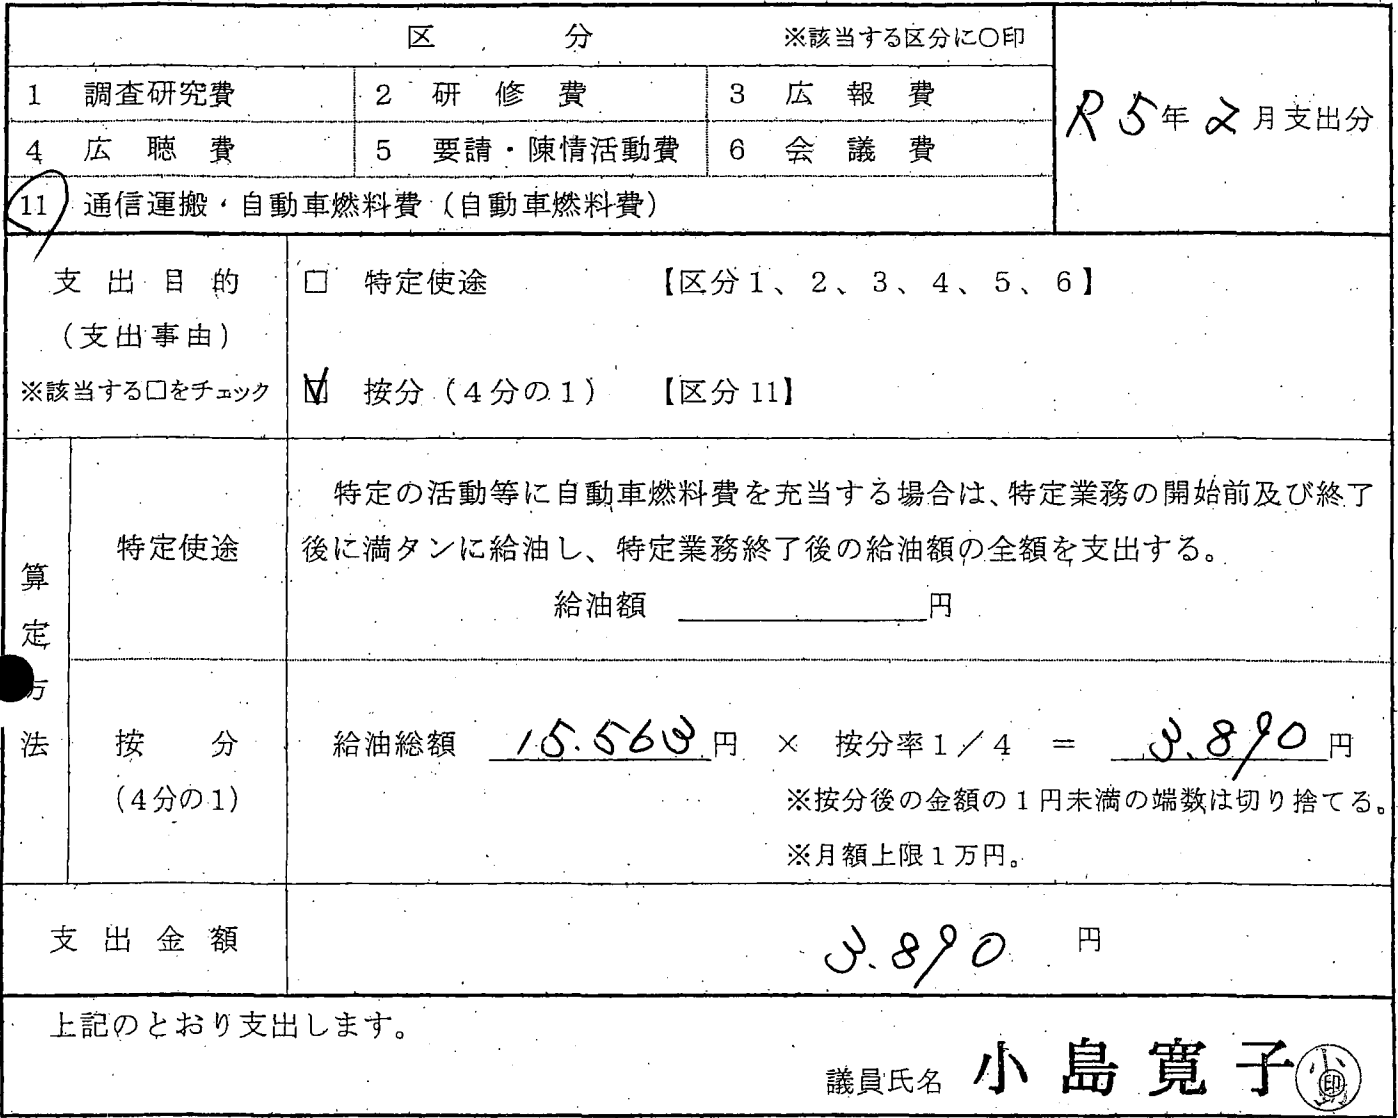 区 分 ※該当する区分に〇印
1 調査研究費 2 研修費 3 広報費
R5年2月支出分
4 広聴費 5 要請・陳情活動費 6 会議費
11 通信運搬・自動車燃料費（自動車燃料費）
支出目的
（支出事由）
※該当する□をチェック
□ 特定使途 【区分1、2、3、4、5、6】
☑ 按分（4分の1） 【区分11】
算定方法
特定使途
特定の活動等に自動車燃料費を充当する場合は、特定業務の開始前及び終了
後に満タンに給油し、特定業務終了後の給油額の全額を支出する。
給油額 円
按分
（4分の1）
給油総額 15.563円 × 按分率1／4 ＝ 3.890円
※按分後の金額の1円未満の端数は切り捨てる。
※月額上限1万円。
支出金額 3.890 円
上記のとおり支出します。
議員氏名 小島寛子 印